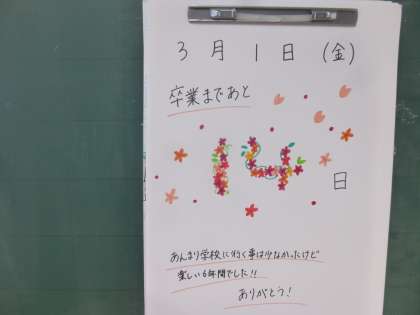 3月1日(金)
卒業まであと
14日
あんまり学校に行く事は少なかったけど
楽しい6年間でした!!
ありがとう!